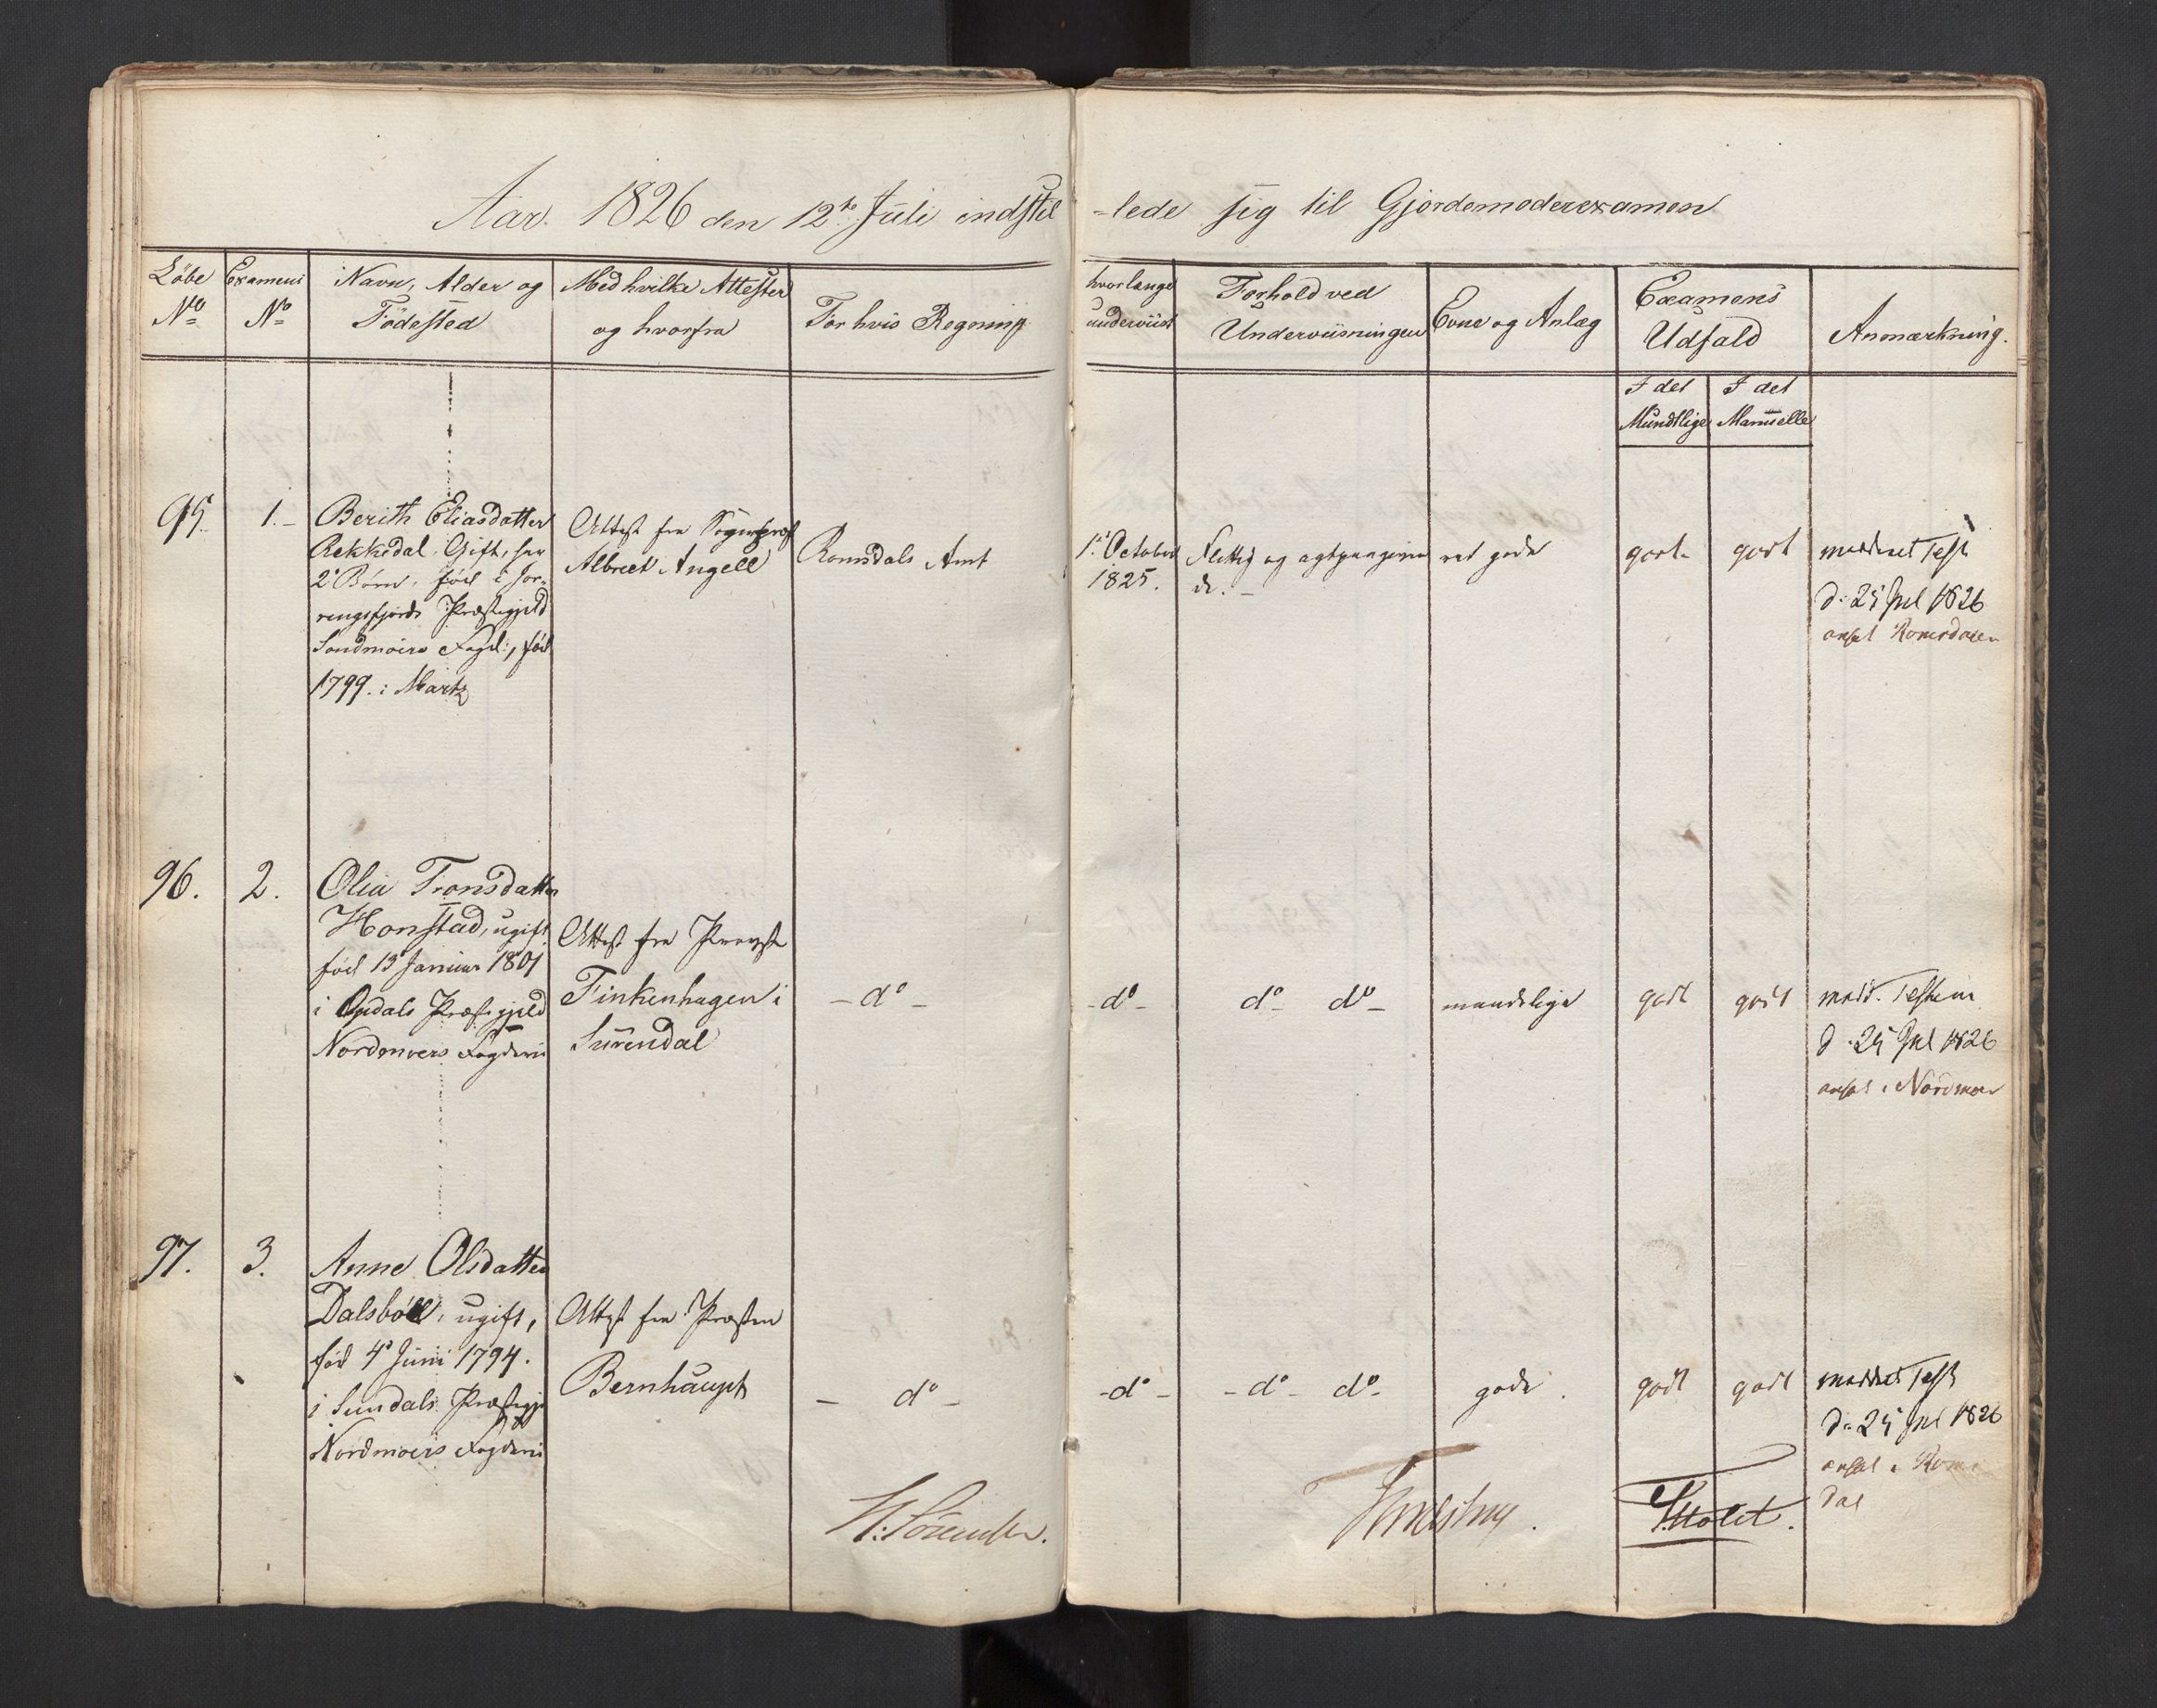 Aar. 1826 den 12te Juli indstil -lede sig til Gjordemoderexamen
Løbe No
Examens No
Navn, Alder og Födested
Med hvilke Attester og hvorfra
For hvis Regning
hvorlænge underviist
Forhold ved Underviisningen
Evne og Anlæg
Examens Udfald
Anmærkning.
I det Mundtlige
I det Manuelle
95. 1.-
Berith Eliasdatter
Rekkedal, Gift, har
2 Börn, föd i Jör-
rengfjords Præstegjeld
Sondmöers Fogd:, föd
1799. i Martz
Attest fra Sognepræst
Albrect Angell
Romsdals Amt
1te October
1825.
Flittig og agtpaagiven
de. -
ret gode
godt
godt
meddeelt Test
d: 25 Jul 1826
ansat Romsdalen
96. 2.
Olia Tronsdatter
Honstad, ugift
föd 13 Januar 1801
i Opdals Præstegjeld
Nordmoers Fogderie
Attest fra Provst
Finkenhagen i
Surendal
- do -
- do -
do - do -
maadelige
godt
godt
medd. Testim
d. 25 Jul 1826
ansat i Nordmør
97. 3.
Anne Olsdatter
Dalsböe, ugift,
föd 4de Juni 1794.
i Sundals Præstegje
Nordmoers Fogderie
Attest fra Præsten
Bernhaupt
- do -
- do -
- do - do -
gode.
godt
godt
meddeelt Test
d: 25 Jul 1826
ansat i Roms
dal